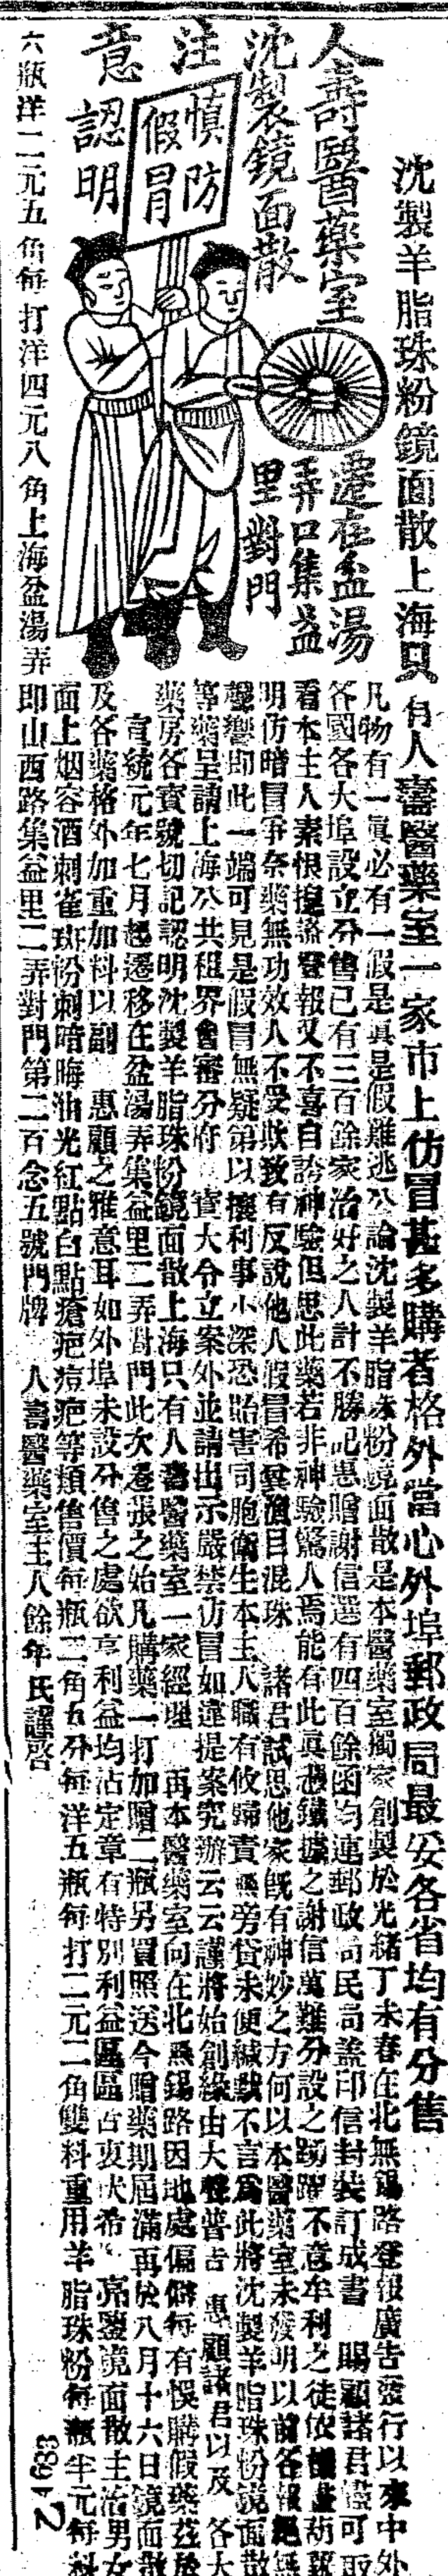 沈製羊脂珠粉鏡面散上海只有人壽醫藥室一家市上仿冒甚多購者格外當心外埠郵政局最妥各省均有分售
人壽醫藥室
沈製鏡面散
注意
慎防
假冒
認明
遷在盆湯
弄口集益
里對門
凡物有一眞必有一假是真是假難逃公論沈製羊脂珠粉鏡面散是本醫藥室獨家創製於光緒丁未春在北無錫路登報廣告發行以來中外
各國各大埠設立分售已有三百餘家治好之人計不勝記惠贈謝信選有四百餘函均連郵政局民局蓋印信封裝訂成書 賜顧諸君儘可取
看本主人素恨撞騙登報又不喜自誇神驗但思此藥若非神驗驚人焉能有此真憑鐵據之謝信萬難分設之踴躍不意牟利之徒依樣畫葫蘆
明仿暗冒爭奈藥無功效人不受欺致有反說他人假冒希冀漁目混珠 諸君試思他家既有神妙之方何以本醫藥室未發明以前各報絕無
聲響即此一端可見是假冒無疑第以攘利事小深恐貽害同胞衛生本主人職有攸歸責無旁貸未便緘默不言爲此將沈製羊脂珠粉鏡面散
等藥呈請上海公共租界會審分府 寶大令立案外並請出示嚴禁仿冒如違提案究辦云云謹將始創緣由大聲普告 惠顧諸君以及 各大
藥房各寶號切記認明沈製羊脂珠粉鏡面散上海只有人壽醫藥室一家經理 再本醫藥室向在北無錫路因地處偏僻每有悞購假藥茲於
宣統元年七月起遷移在盆湯弄集益里二弄對門此次遷張之始凡購藥一打加贈二瓶另買照送今贈藥期屆滿再於八月十六日鏡面散
及各藥格外加重加料以副 惠顧之雅意耳如外埠未設分售之處欲享利益均沾定章有特別利益區區古衷伏希 亮鑒鏡面散主治男女
面上烟容酒刺雀斑粉刺暗晦油光紅點白點瘡疤痘疤等類售價每瓶二角五分每洋五瓶每打二元二角雙料重用羊脂珠粉每瓶半元每料
六瓶洋二元五角每打洋四元八角上海盆湯弄即山西路集益里二弄對門第二百念五號門牌 人壽醫藥室主人餘年氏謹啓